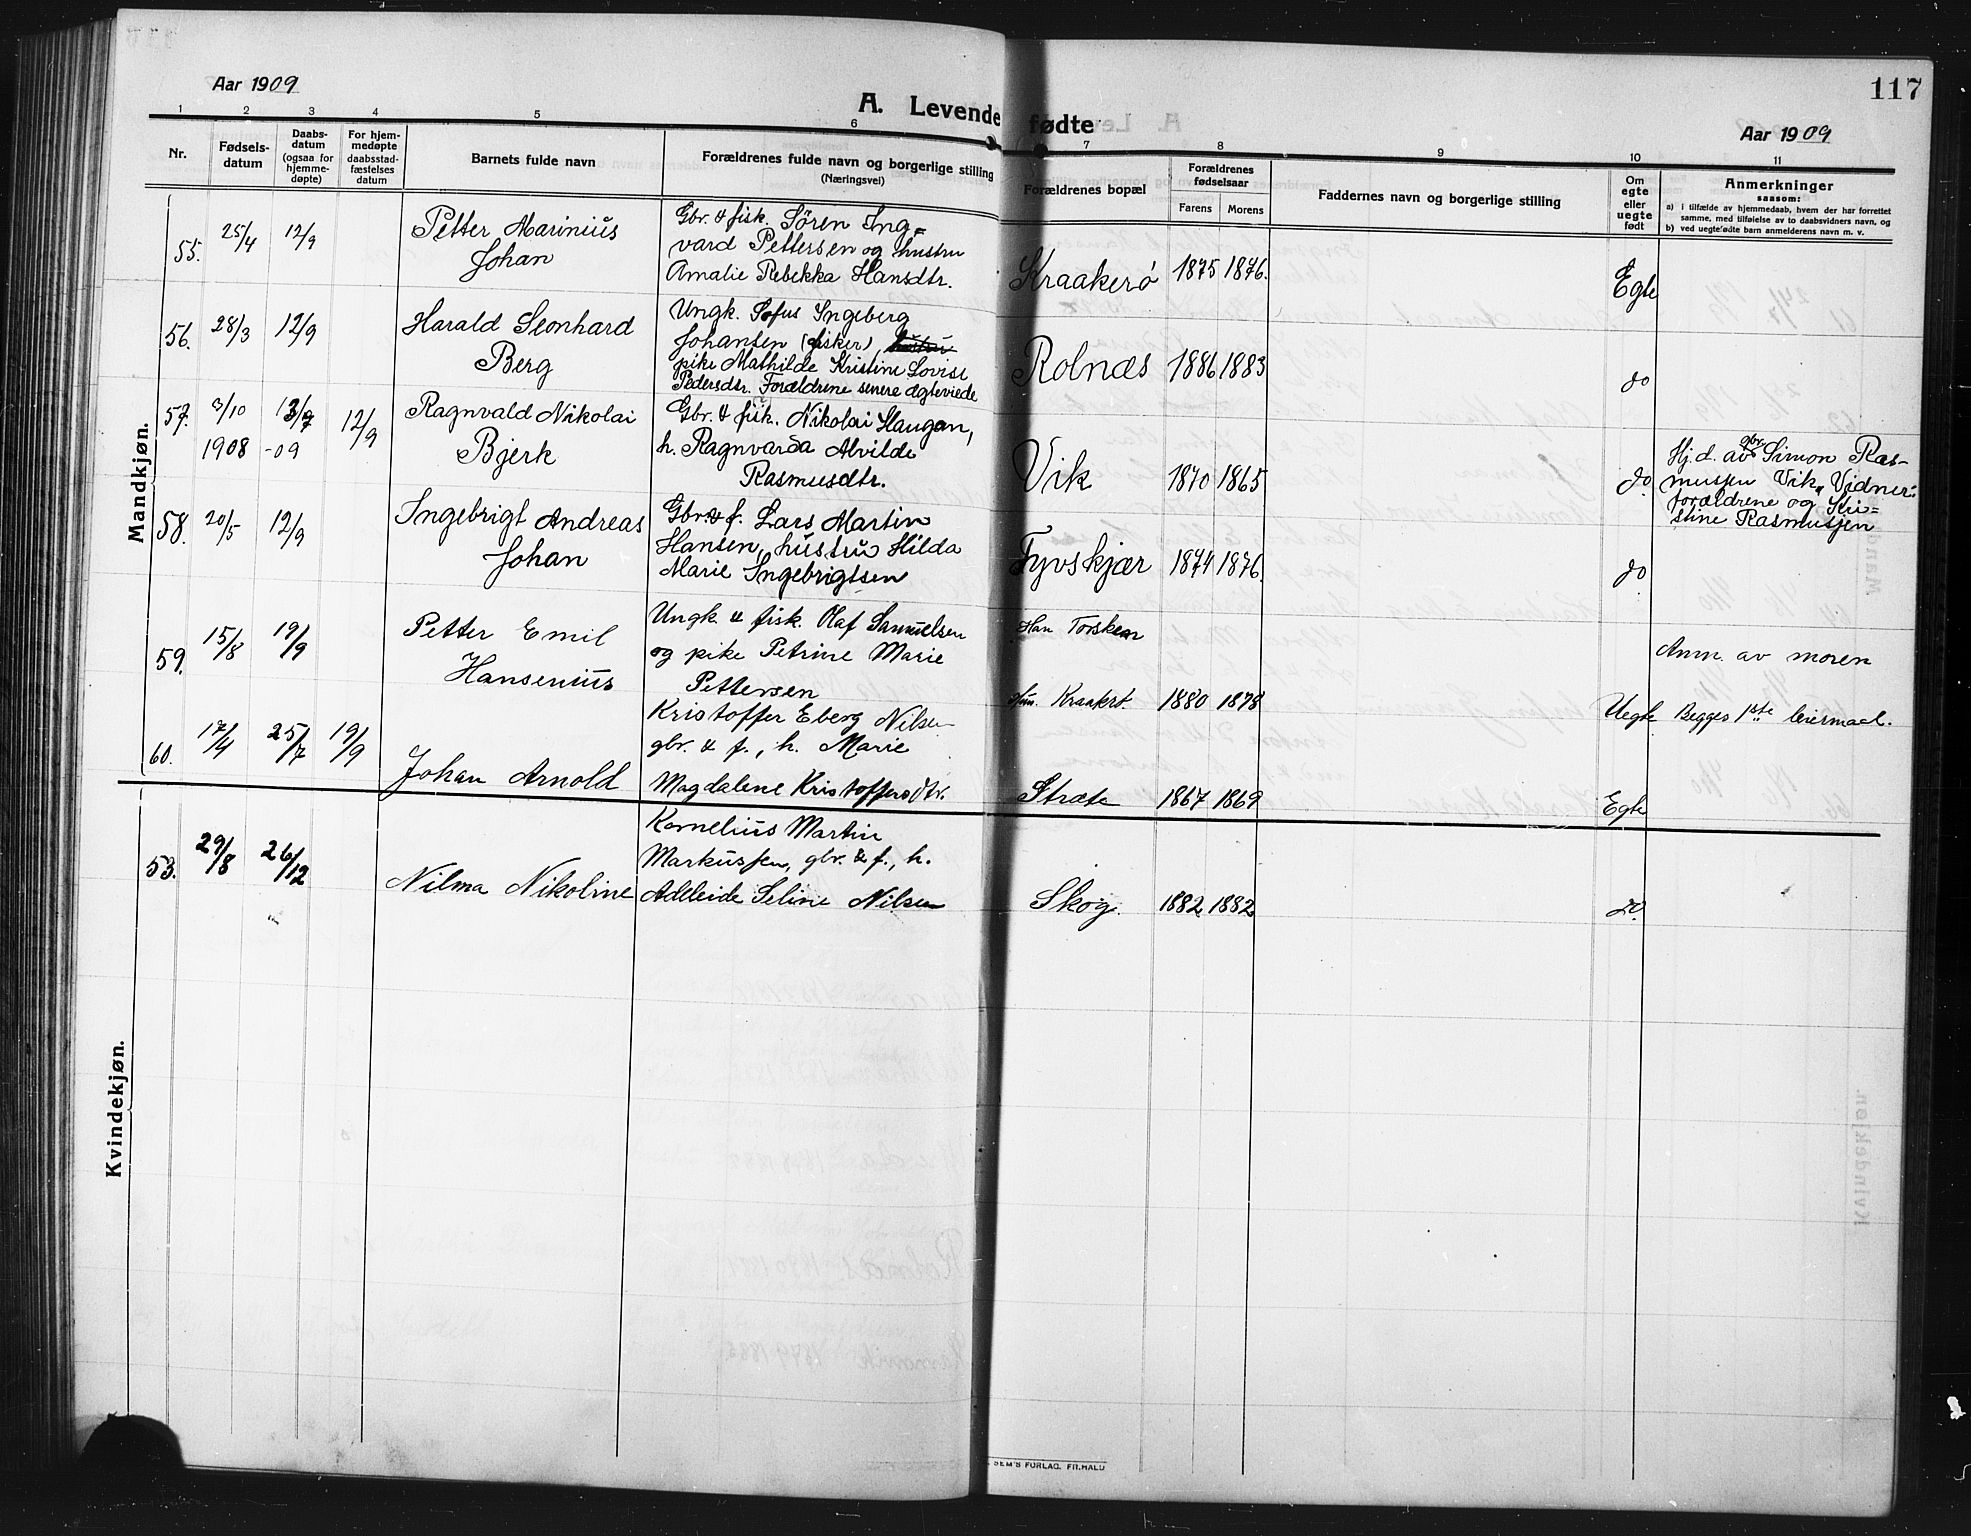 117
Aar 1909
A. Levende fødte
Aar 1909
1 2 3 4 5 6 7 8 9 10 11
Nr.
Fødsels-
datum
Daabs-
datum
(ogsaa for
hjemme-
døpte)
For hjem-
medøpte
daabsstad-
fæstelses
datum
Barnets fulde navn
Forældrenes fulde navn og borgerlige stilling
(Næringsvei)
Forældrenes bopæl
Forældrenes
fødselsaar
Farens Morens
Faddernes navn og borgerlige stilling
Om
egte
eller
uegte
født
Anmerkninger
saasom:
a) i tilfælde av hjemmedaab, hvem der har forrettet
samme, med tilføielse av to daabsvidners navn, og
b) ved uegtefødte barn anmelderens navn m. v.
Mandkjøn.
55. 25/4 12/9
Petter Marinius
Johan
Gbr. & fisk. Søren Ing=
vard Pettersen og hustru
Amalie Rebekka Hansdtr.
Kraakerø 1875 1876. Egte
56. 28/3 12/9
Harald Leonhard
Berg
Ungk. Sofus Ingeberg
Johansen (fisker) hustru
pike Mathilde Kristine Lovise
Pedersdtr. Forældrene senere ægteviede
Rolnæs 1886 1883 do
57. 3/10 1908 13/7 -09 12/9
Ragnvald Nikolai
Bjerk
Gbr. & fisk. Nikolai Haugan,
h. Ragnvarda Alvilde
Rasmusdtr.
Vik 1870 1865 do
Hj.d. av gbr. Simon Ras-
mussen Vik, Vidner:
forældrene og Kri=
stine Rasmussen
58. 20/5 12/9
Ingebrigt Andreas
Johan
Gbr. & f. Lars Martin
Hansen, hustru Hilda
Marie Ingebrigtsen
Tyvskjær 1874 1876. do
59. 15/8 19/9
Petter Emil
Hansenius
Ungk & fisk. Olaf Samuelsen
og pike Petrine Marie
Pettersen
Han Torsken
Hun. Kraakerø. 1880 1878 Uegte
Anm. av moren
Begges 1ste leiermaal.
60. 17/4 25/7 19/9
Johan Arnold
Kristoffer Eberg Nilsen
gbr. & f., h. Marie
Magdalene Kristoffersdtr.
Stræte 1867 1869 Egte
Kvindekjøn.
53. 29/8 26/12
Nilma Nikoline
Kornelius Martin
Markussen, gbr. & f., h.
Adeleide Seline Nilsen
Skog. 1882 1882 do
SEM'S FORLAG, FR.HALD